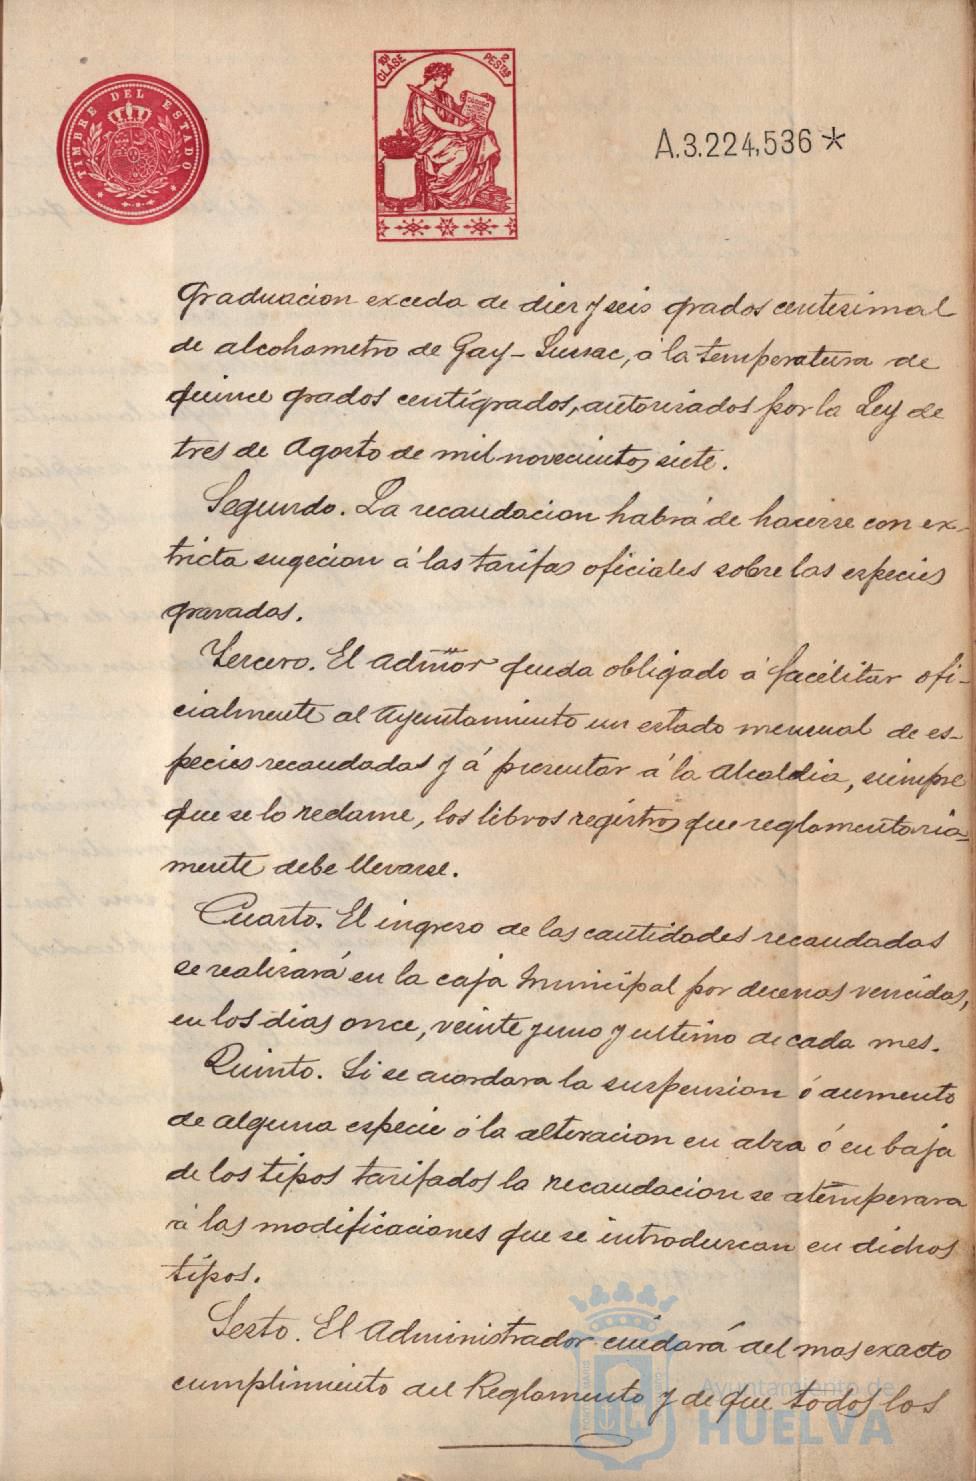 TIMBRE DEL ESTADO
10ª CLASE
2 PESTAS
CODIGO
A.3.224,536 *
graduacion exceda de diez y seis grados centesimal
de alcohometro de Gay-Lussac, á la temperatura de
quince grados centígrados, autorizados por la Ley de
tres de Agosto de mil novecientos siete.
Segundo. La recaudacion habrá de hacerse con ex-
tricta sugecion á las tarifas oficiales sobre las especies
gravadas.
Tercero. El Admor queda obligado á facilitar ofi-
cialmente al Ayuntamiento un estado mensual de es-
pecies recaudadas y á presentar á la Alcaldia, siempre
que se lo reclame, los libros registros que reglamentaria-
mente debe llevarse.
Cuarto. El ingreso de las cantidades recaudadas
se realizará en la caja Municipal por decenas vencidas,
en los dias once, veinte y uno y ultimo de cada mes.
Quinto. Si se acordara la suspension ó aumento
de alguna especie ó la alteracion en alza ó en baja
de los tipos tarifados la recaudacion se atemperara
á las modificaciones que se introduzcan en dichos
tipos.
Sexto. El Administrador cuidará del mas exacto
cumplimiento del Reglamento y de que todos los
Ayuntamiento de
HUELVA